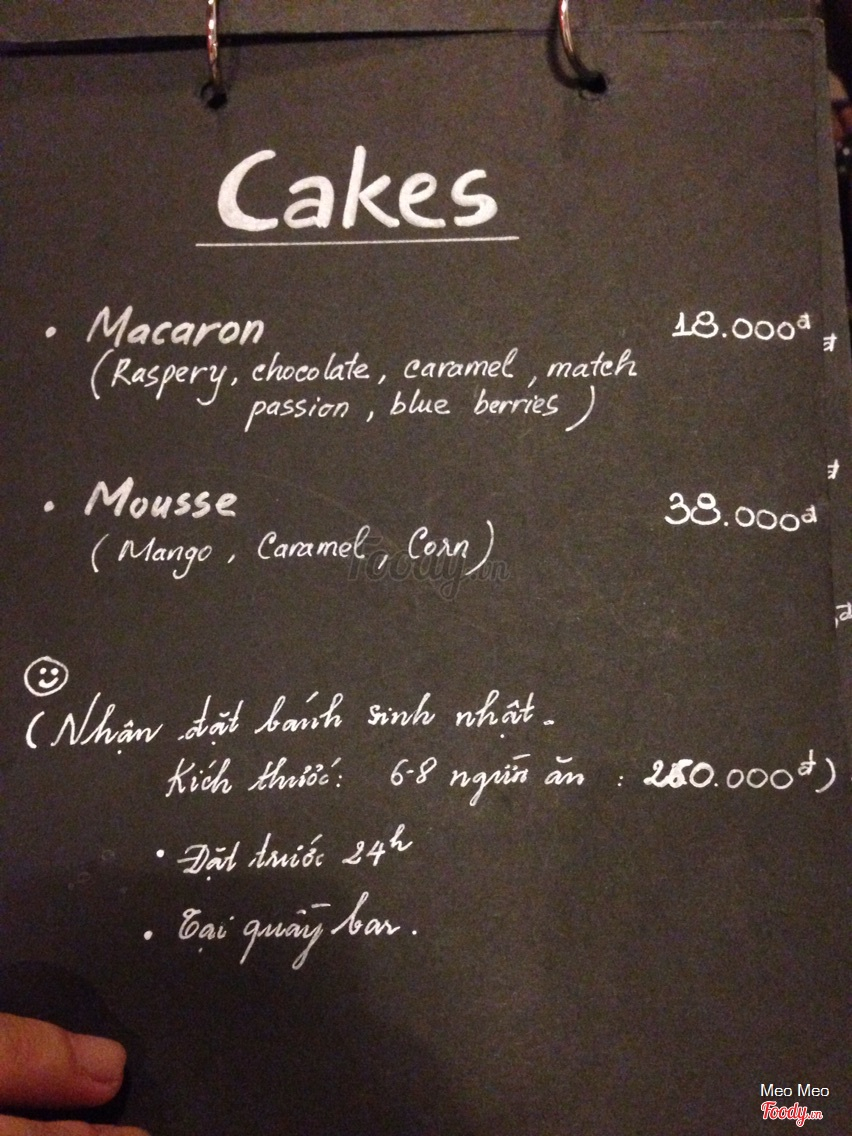 Cakes
• Macaron 18.000đ
(Raspery, chocolate, caramel, match
passion, blue berries)
• Mousse 38.000đ
(Mango, Caramel, Corn)
(Nhận đặt bánh sinh nhật.
Kích thước: 6-8 người ăn : 000đ)
• Đặt trước 24h
• Tại quầy bar.
Foody.vn
Meo Meo
Foody.vn